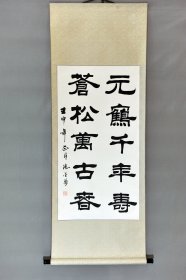 元鶴千年壽
蒼松萬古春
壬申年